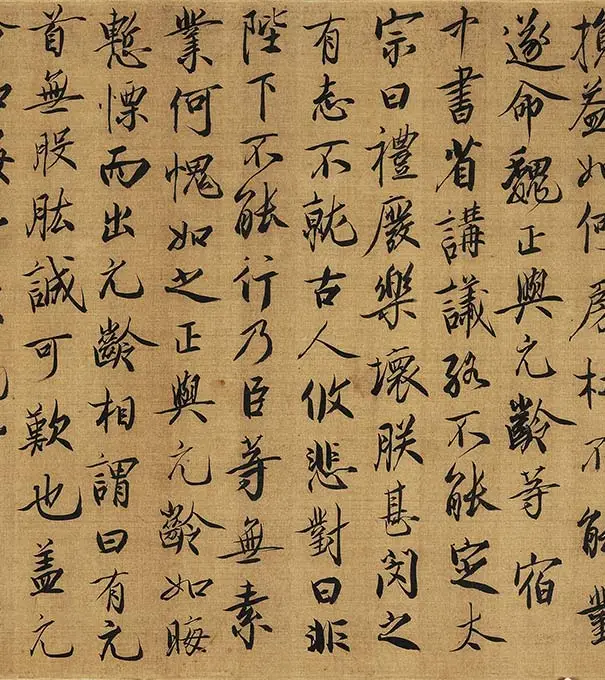 損益如何房杜不能對
遂命魏正與元齡等宿
中書省講議終不能定太
宗曰禮廢樂壞朕甚閔之
有志不就古人攸悲對曰非
陛下不能行乃臣等無素
業何愧如之正與元齡如晦
慙慄而出元齡相謂曰有元
首無股肱誠可歎也蓋元